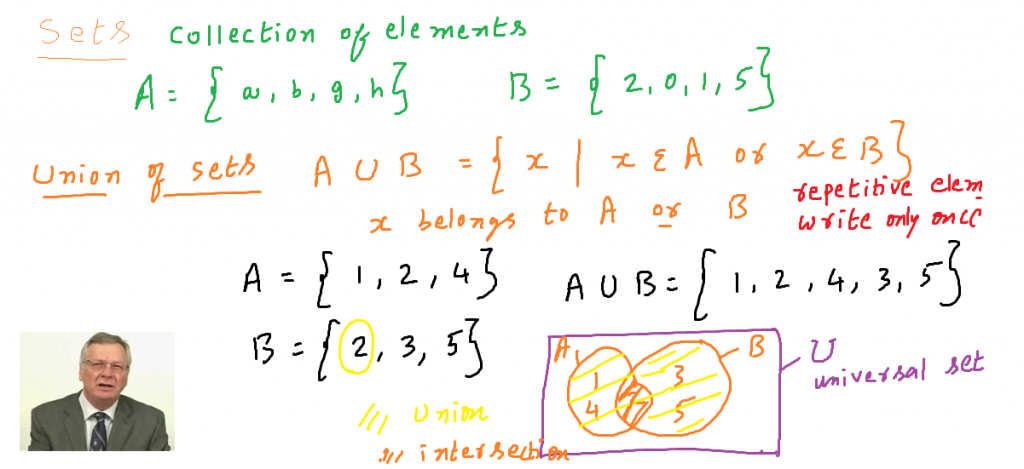 Sets collection of elements
A = { a, b, g, h} B = { 2, 0, 1, 5}
Union of sets A U B = { x | x ε A or x ε B}
x belongs to A or B
repetitive elem
write only once
A = { 1, 2, 4} A U B = { 1, 2, 4, 3, 5}
B = { 2, 3, 5}
A B U
universal set
1 3
4 5
/// Union
/// intersection